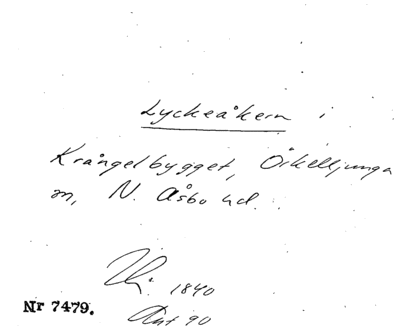 Lyckeåkern i
Krångelbygget, Örkelljunga
sn, N. Åsbo hd.
1840
Nr 7479.
Akt 90